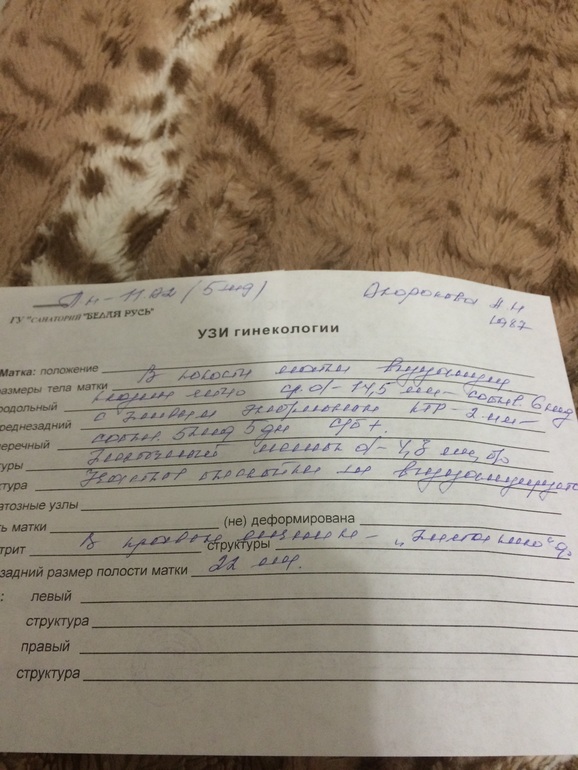 Пн - 11.02 (5 нед)
ГУ "САНАТОРИЙ "БЕЛАЯ РУСЬ"
1987
УЗИ гинекологии
Матка: положение В полости матки визуализир
размеры тела матки плодное яйцо ср. d - 14,5 мм - соотв. 6 нед
родольный с живым эмбрионом КТР - 2 мм -
реднезадний соотв. 5 нед 5 дн с/б +.
перечный Желточный мешок d - 4,8 мм,
уры
ктура визуализируется
атозные узлы
ть матки (не) деформирована
трит В правом яичнике - „желтое тело" d.
структуры
задний размер полости матки 22 мм.
: левый
структура
правый
структура